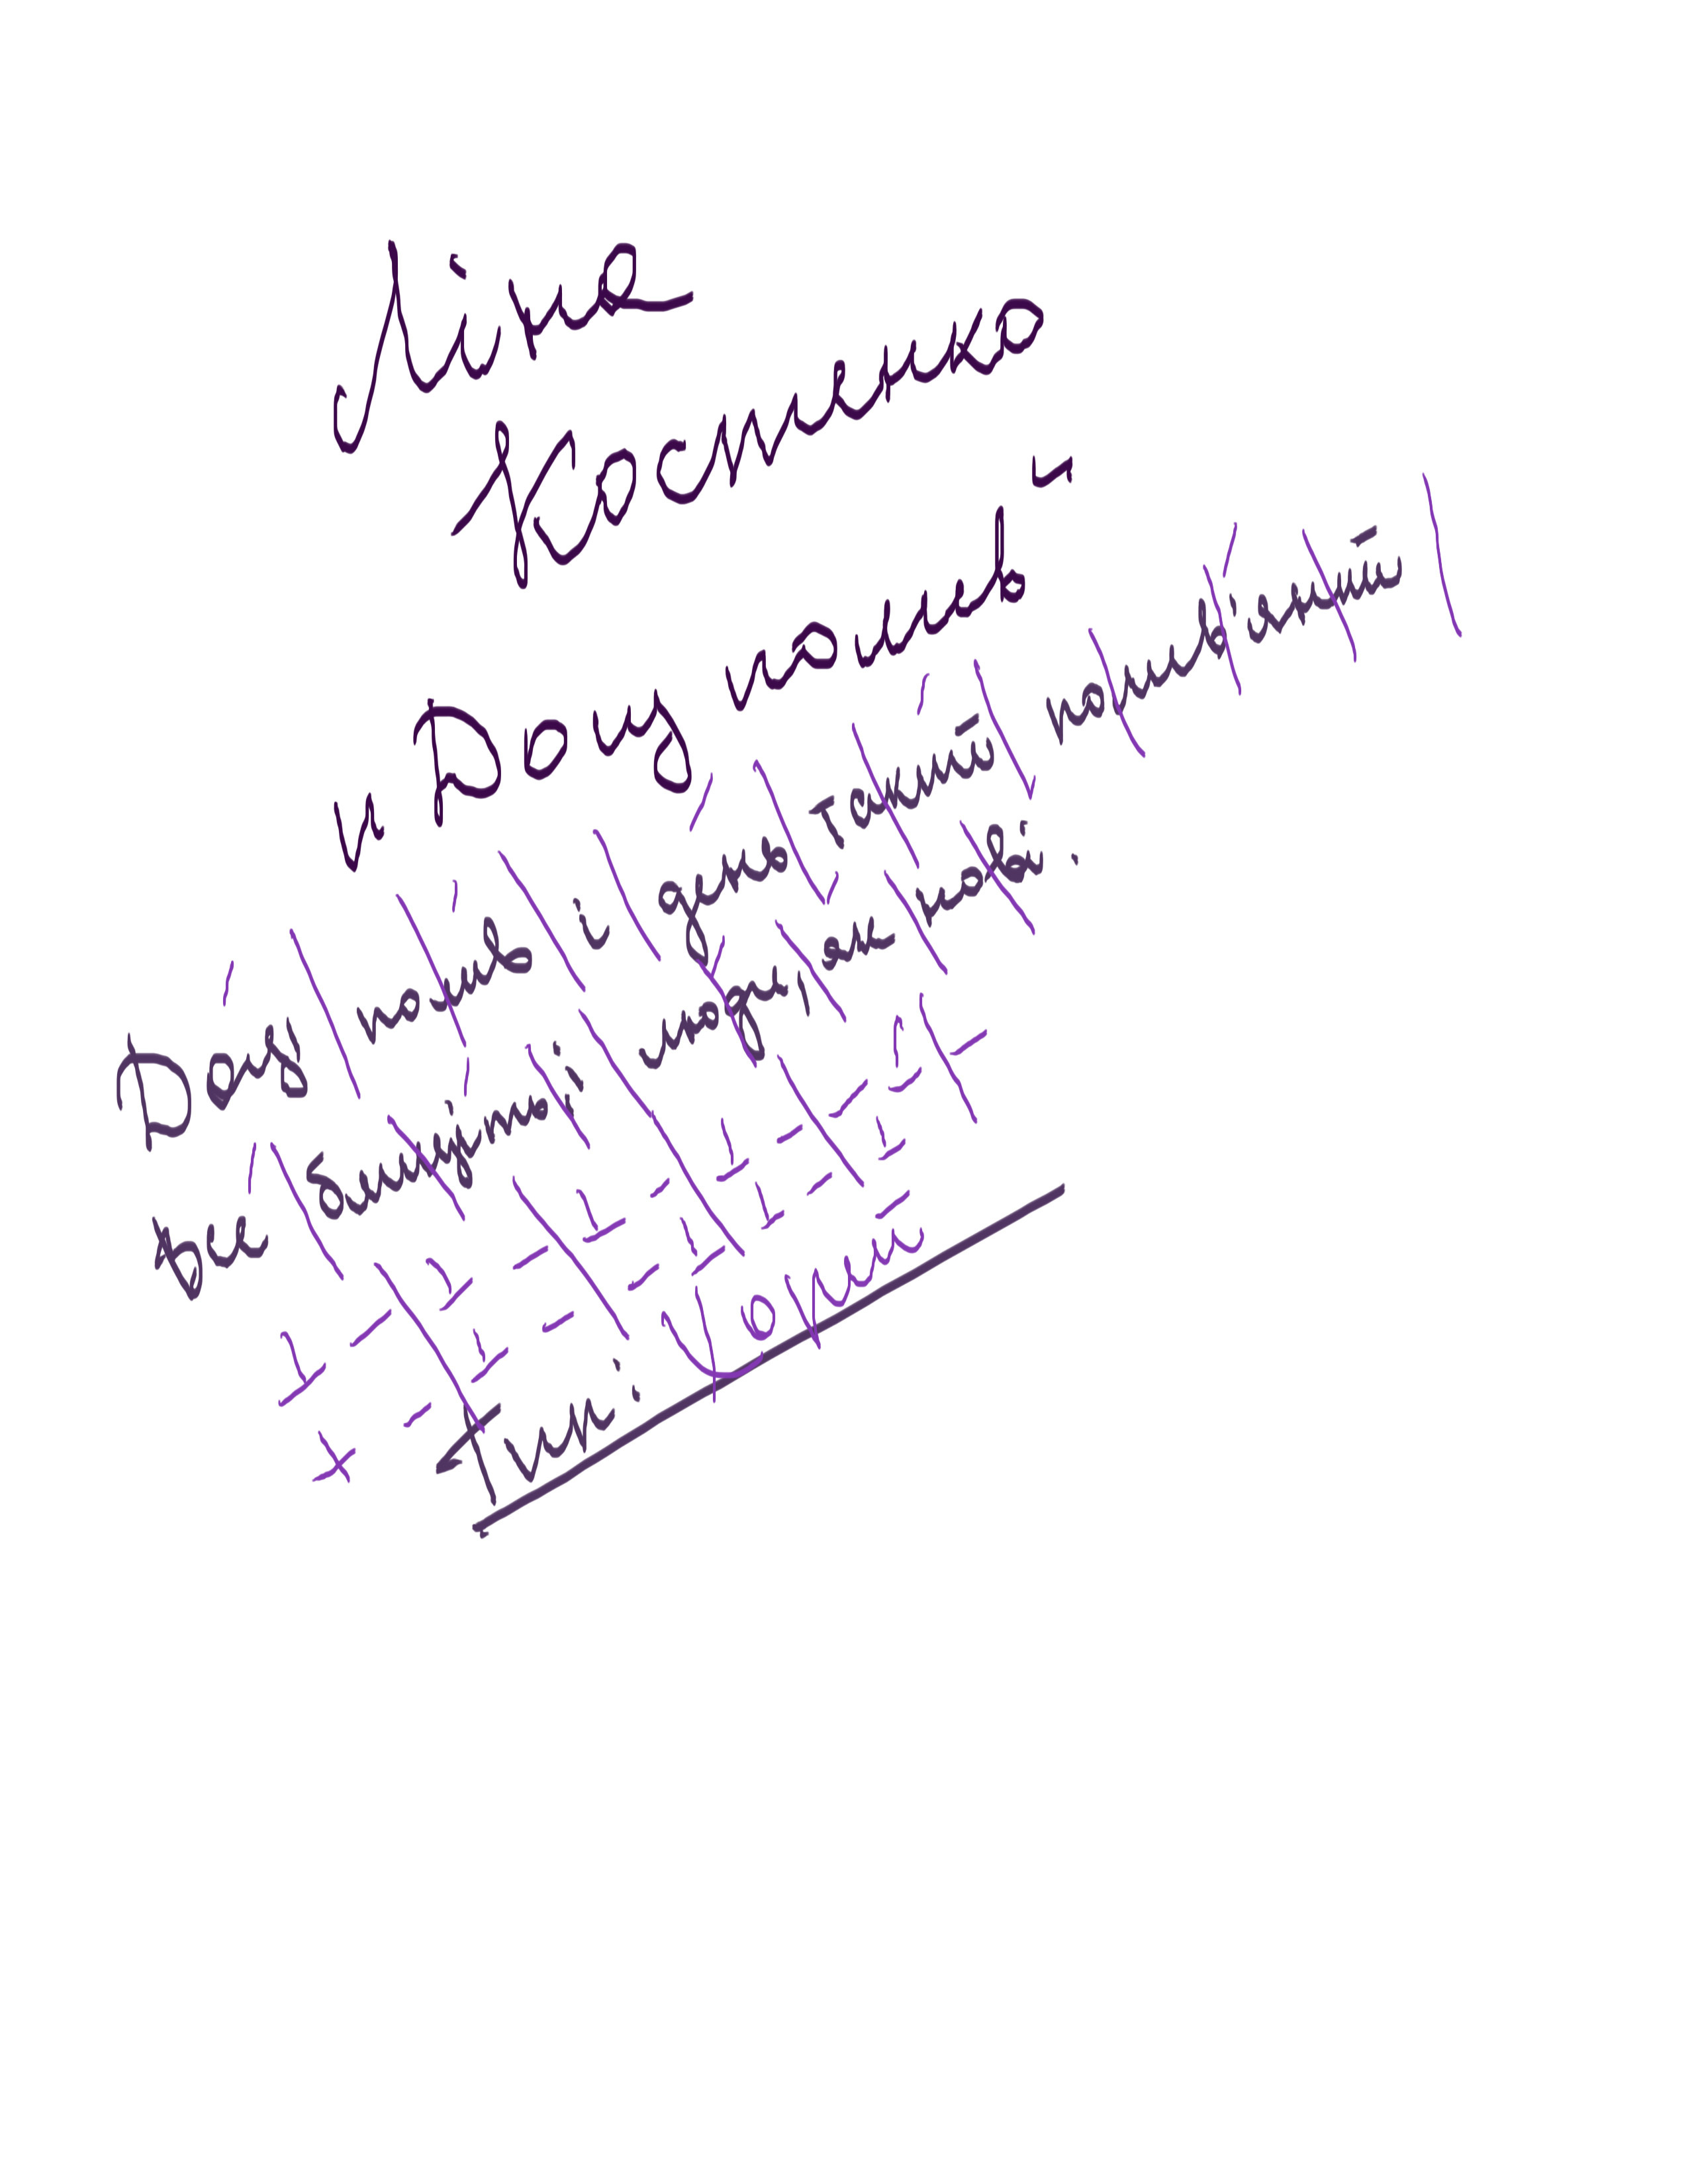 Ліна
Костенко
"Дощ полив"
Дощ полив і день такий полив'яний
Все блищить, і люди як нові.
Хорей